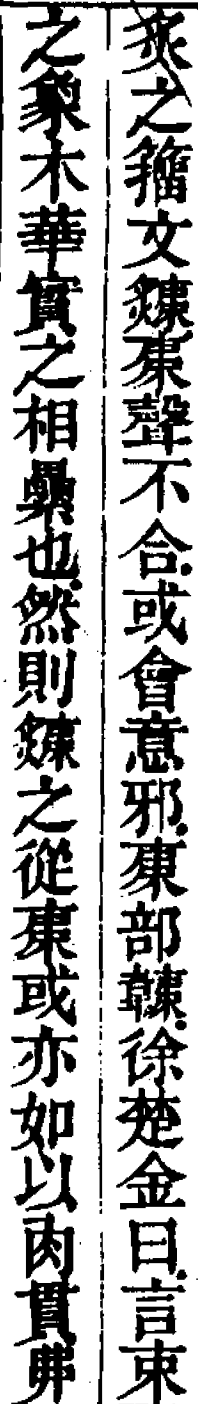 炙之籒文𤑁𣐺聲不合或會意邪𣐺部𣡌徐楚金曰言束
之象木華實之相纍也然則𤑁之從𣐺或亦如以肉貫弗